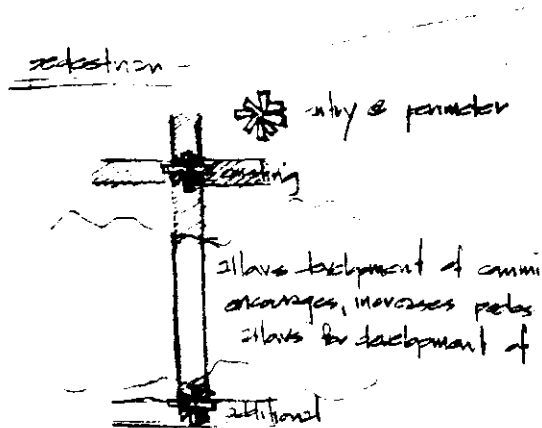 pedestrian -
entry @ perimeter
existing
allows development of commu
encourages, increases pedes
allows for development of
additional